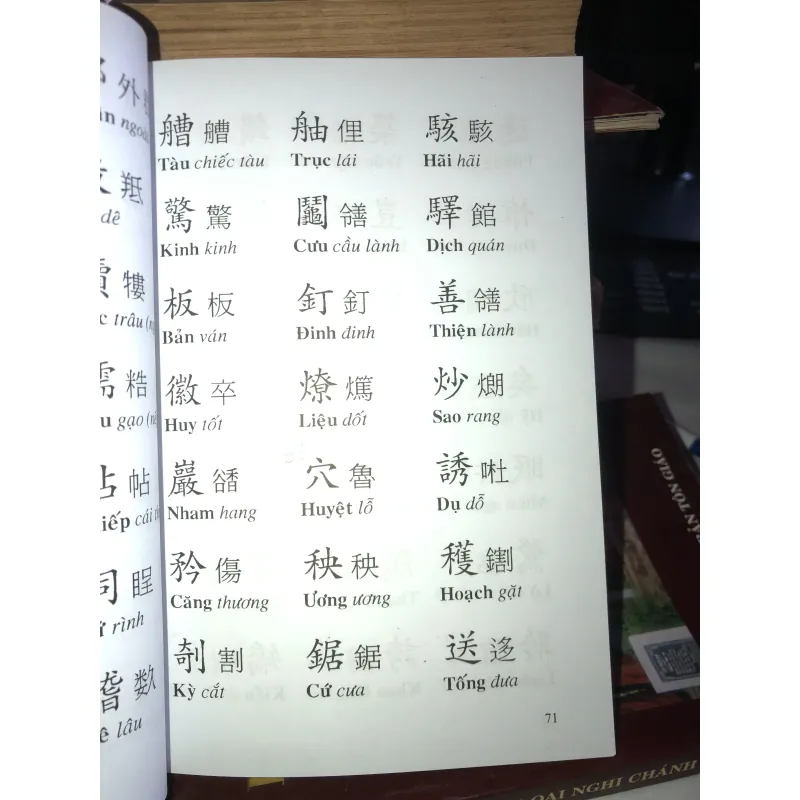 外
ngoài
艚 艚 舳 俚 駭 駭
Tàu chiếc tàu Trục lái Hãi hãi
羝
dê
驚 驚 鬮 驛 館
Kinh kinh Cưu cầu lành Dịch quán
板 板 釘 釘 善
trâu
Bản ván Đinh đinh Thiện lành
徽 卒 燎 炒
gạo
Huy tốt Liệu dốt Sao rang
巖 穴 魯 誘
帖
iếp cái
Nham hang Huyệt lỗ Dụ dỗ
矜 傷 秧 秧 穫
rình
Căng thương Ương ương Hoạch gặt
剞 割 鋸 鋸 送 迻
稽 数
ê lâu
Kỳ cắt Cứ cưa Tống đưa
71
BẢN TÔN GIÁO
OẠI NGHI CHÁNH